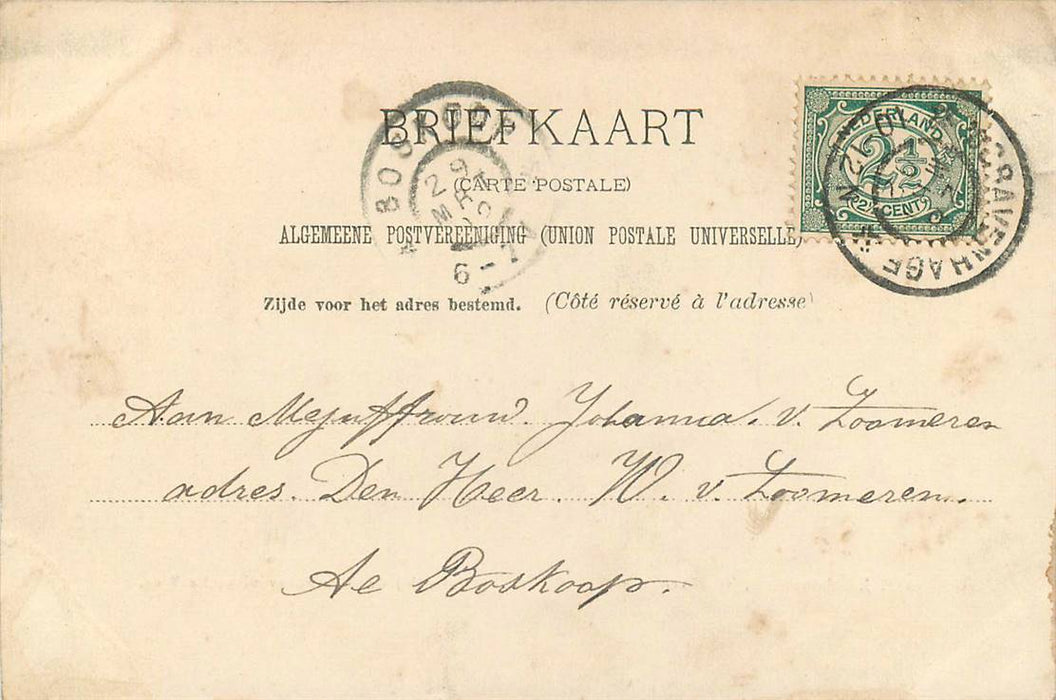 BRIEFKAART
(CARTE POSTALE)
ALGEMEENE POSTVEREENIGING (UNION POSTALE UNIVERSELLE)
Zijde voor het adres bestemd. (Côté réservé à l'adresse)
NEDERLAND
2½
2½ CENT
'S GRAVENHAGE
BOSKOOP
29
MRT
6-7
Aan Mejuffrouw. Johanna. v. Zoomeren
adres. Den Heer. W. v. Zoomeren.
Te Boskoop.